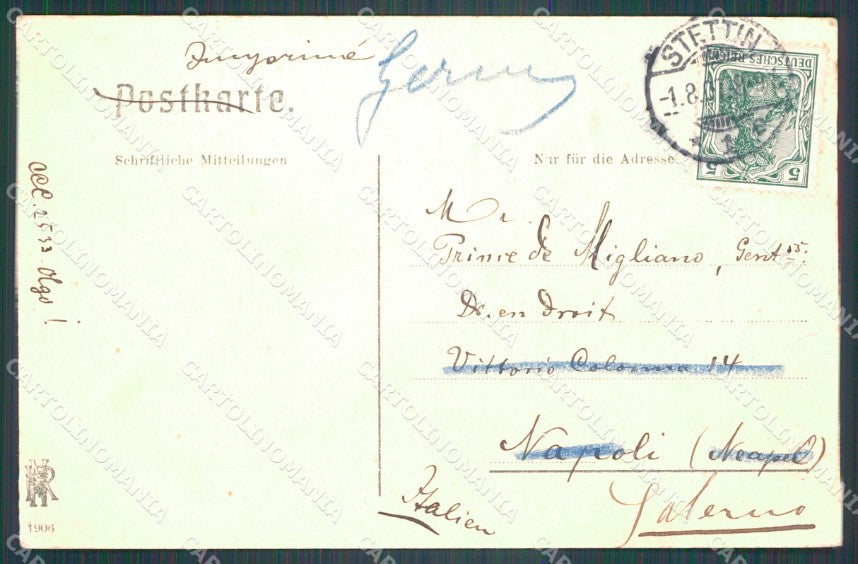 Imprimé
Postkarte.
Schriftliche Mitteilungen
Nur für die Adresse
STETTIN
-1.8.
DEUTSCHES REICH
5
CCC. 2533 Olga!
Mr.
Prince de Migliano, Gent
Dr. en Droit
Vittorio Colonna 14
Napoli (Neapel)
Italien
Salerno
1906
CARTOLINOMANIA